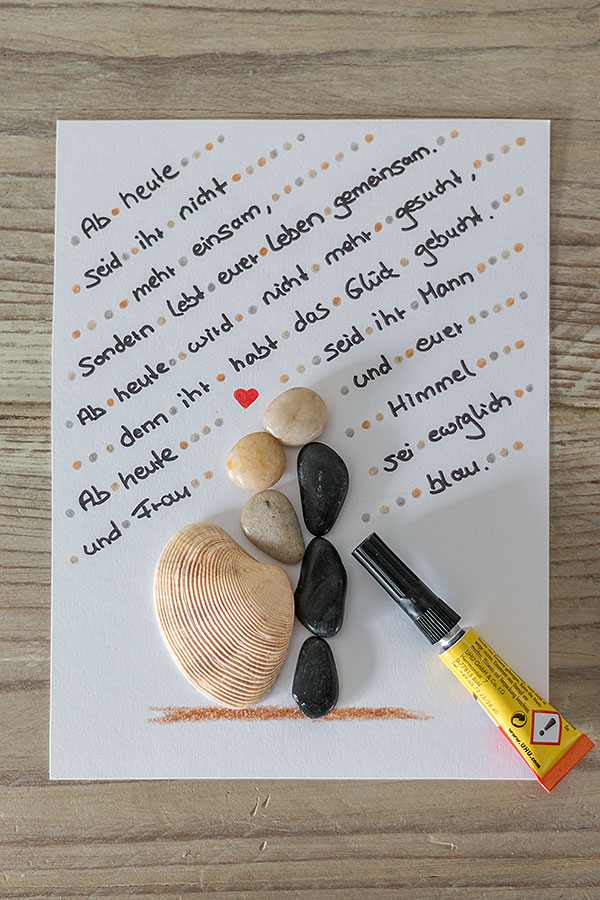 Ab heute
seid ihr nicht
mehr einsam,
sondern lebt euer Leben gemeinsam.
Ab heute wird nicht mehr gesucht,
denn ihr habt das Glück gebucht.
Ab heute seid ihr Mann
und Frau und euer
Himmel
sei ewiglich
blau.
UHU GmbH & Co. KG
www.UHU.com